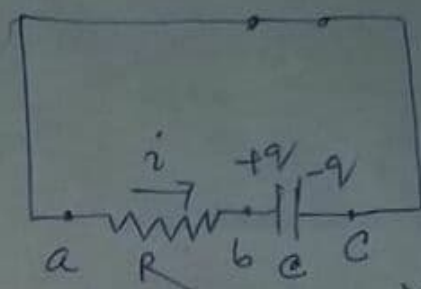 i +q -q
a R b c C